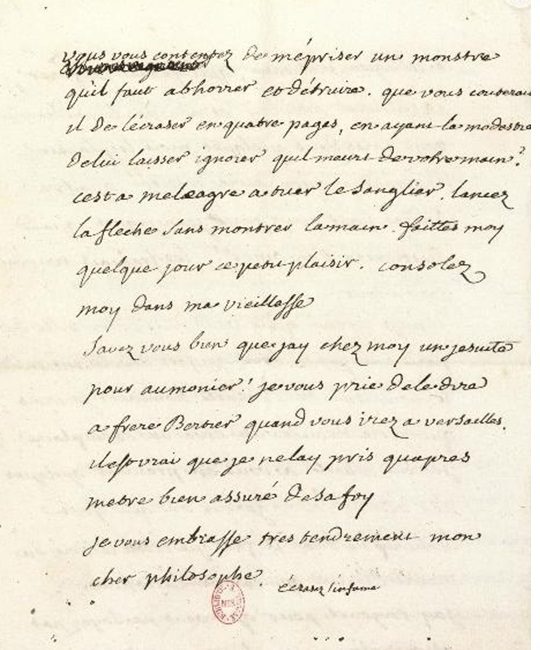 vous vous contentez de mépriser un monstre
qu'il faut abhorrer et détruire. que vous couterait
il de lécraser en quatre pages, en ayant la modestie
de lui laisser ignorer quil meurt de votre main?
cest a meleagre a tuer le sanglier. lancez
la fleche sans montrer la main. faittes moy
quelque jour ce petit plaisir. consolez
moy dans ma vieillesse
savez vous bien que jay chez moy un jesuite
pour aumonier! je vous prie de le dire
a frere Bertier quand vous irez a versailles.
il est vrai que je ne lay pris quapres
metre bien assuré de sa foy
je vous embrasse tres tendrement mon
cher philosophe.
écrasez linfame